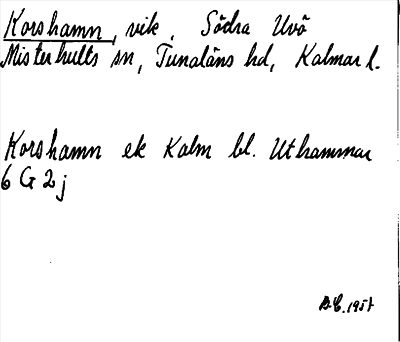 Korshamn, vik, Södra Uvö
Misterhults sn, Tunaläns hd, Kalmar l.
Korshamn ek Kalm bl. Uthammar
6 G 2 j
B.E. 1957